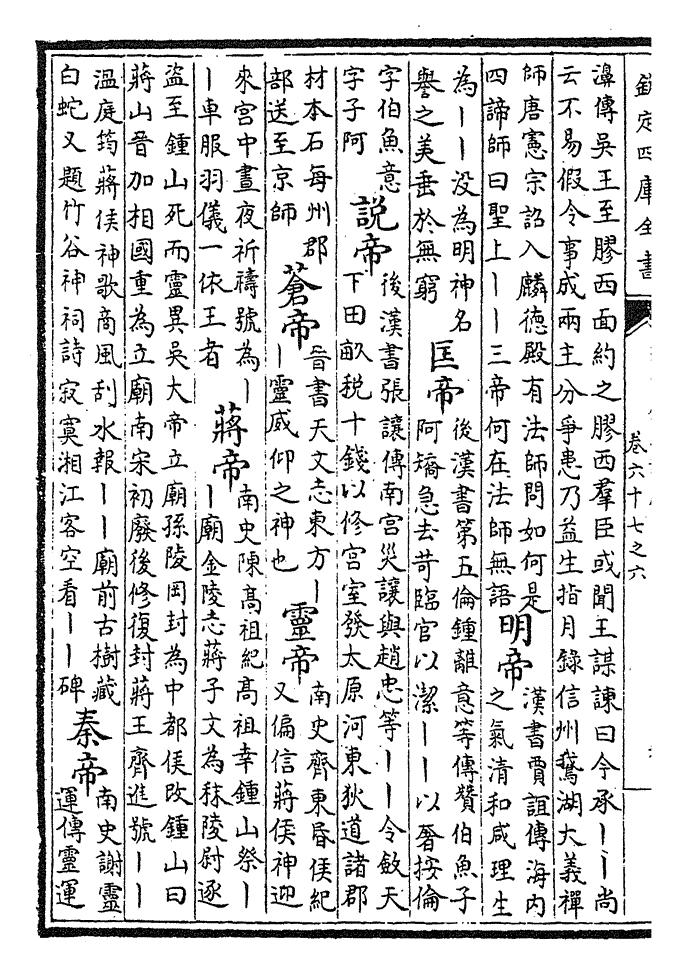 欽定四庫全書
卷六十七之六
濞傳吳王至膠西面約之膠西羣臣或聞王謀諫曰今承丨丨尚
云不易假令事成兩主分爭患乃益生指月錄信州鵝湖大義禪
師唐憲宗詔入麟德殿有法師問如何是
四諦師曰聖上丨丨三帝何在法師無語
明帝
漢書賈誼傳海内
之氣清和咸理生
為丨丨没為明神名
譽之美垂於無窮
匡帝
後漢書第五倫鍾離意等傳贊伯魚子
阿矯急去苛臨官以潔丨丨以奢按倫
字伯魚意
字子阿
説帝
後漢書張讓傳南宫災讓與趙忠等丨丨令斂天
下田畝税十錢以修宫室發太原河東狄道諸郡
材本石每州郡
部送至京師
蒼帝
晉書天文志東方丨
丨靈威仰之神也
靈帝
南史齊東昏侯紀
又偏信蔣侯神迎
來宫中晝夜祈禱號為丨
丨車服羽儀一依王者
蔣帝
南史陳髙祖紀髙祖幸鍾山祭丨
丨廟金陵志蔣子文為秣陵尉逐
盜至鍾山死而靈異吳大帝立廟孫陵岡封為中都侯改鍾山曰
蔣山晉加相國重為立廟南宋初廢後修復封蔣王齊進號丨丨
溫庭筠蔣侯神歌商風刮水報丨丨廟前古樹藏
白蛇又題竹谷神祠詩寂寞湘江客空看丨丨碑
秦帝
南史謝靈
運傳靈運